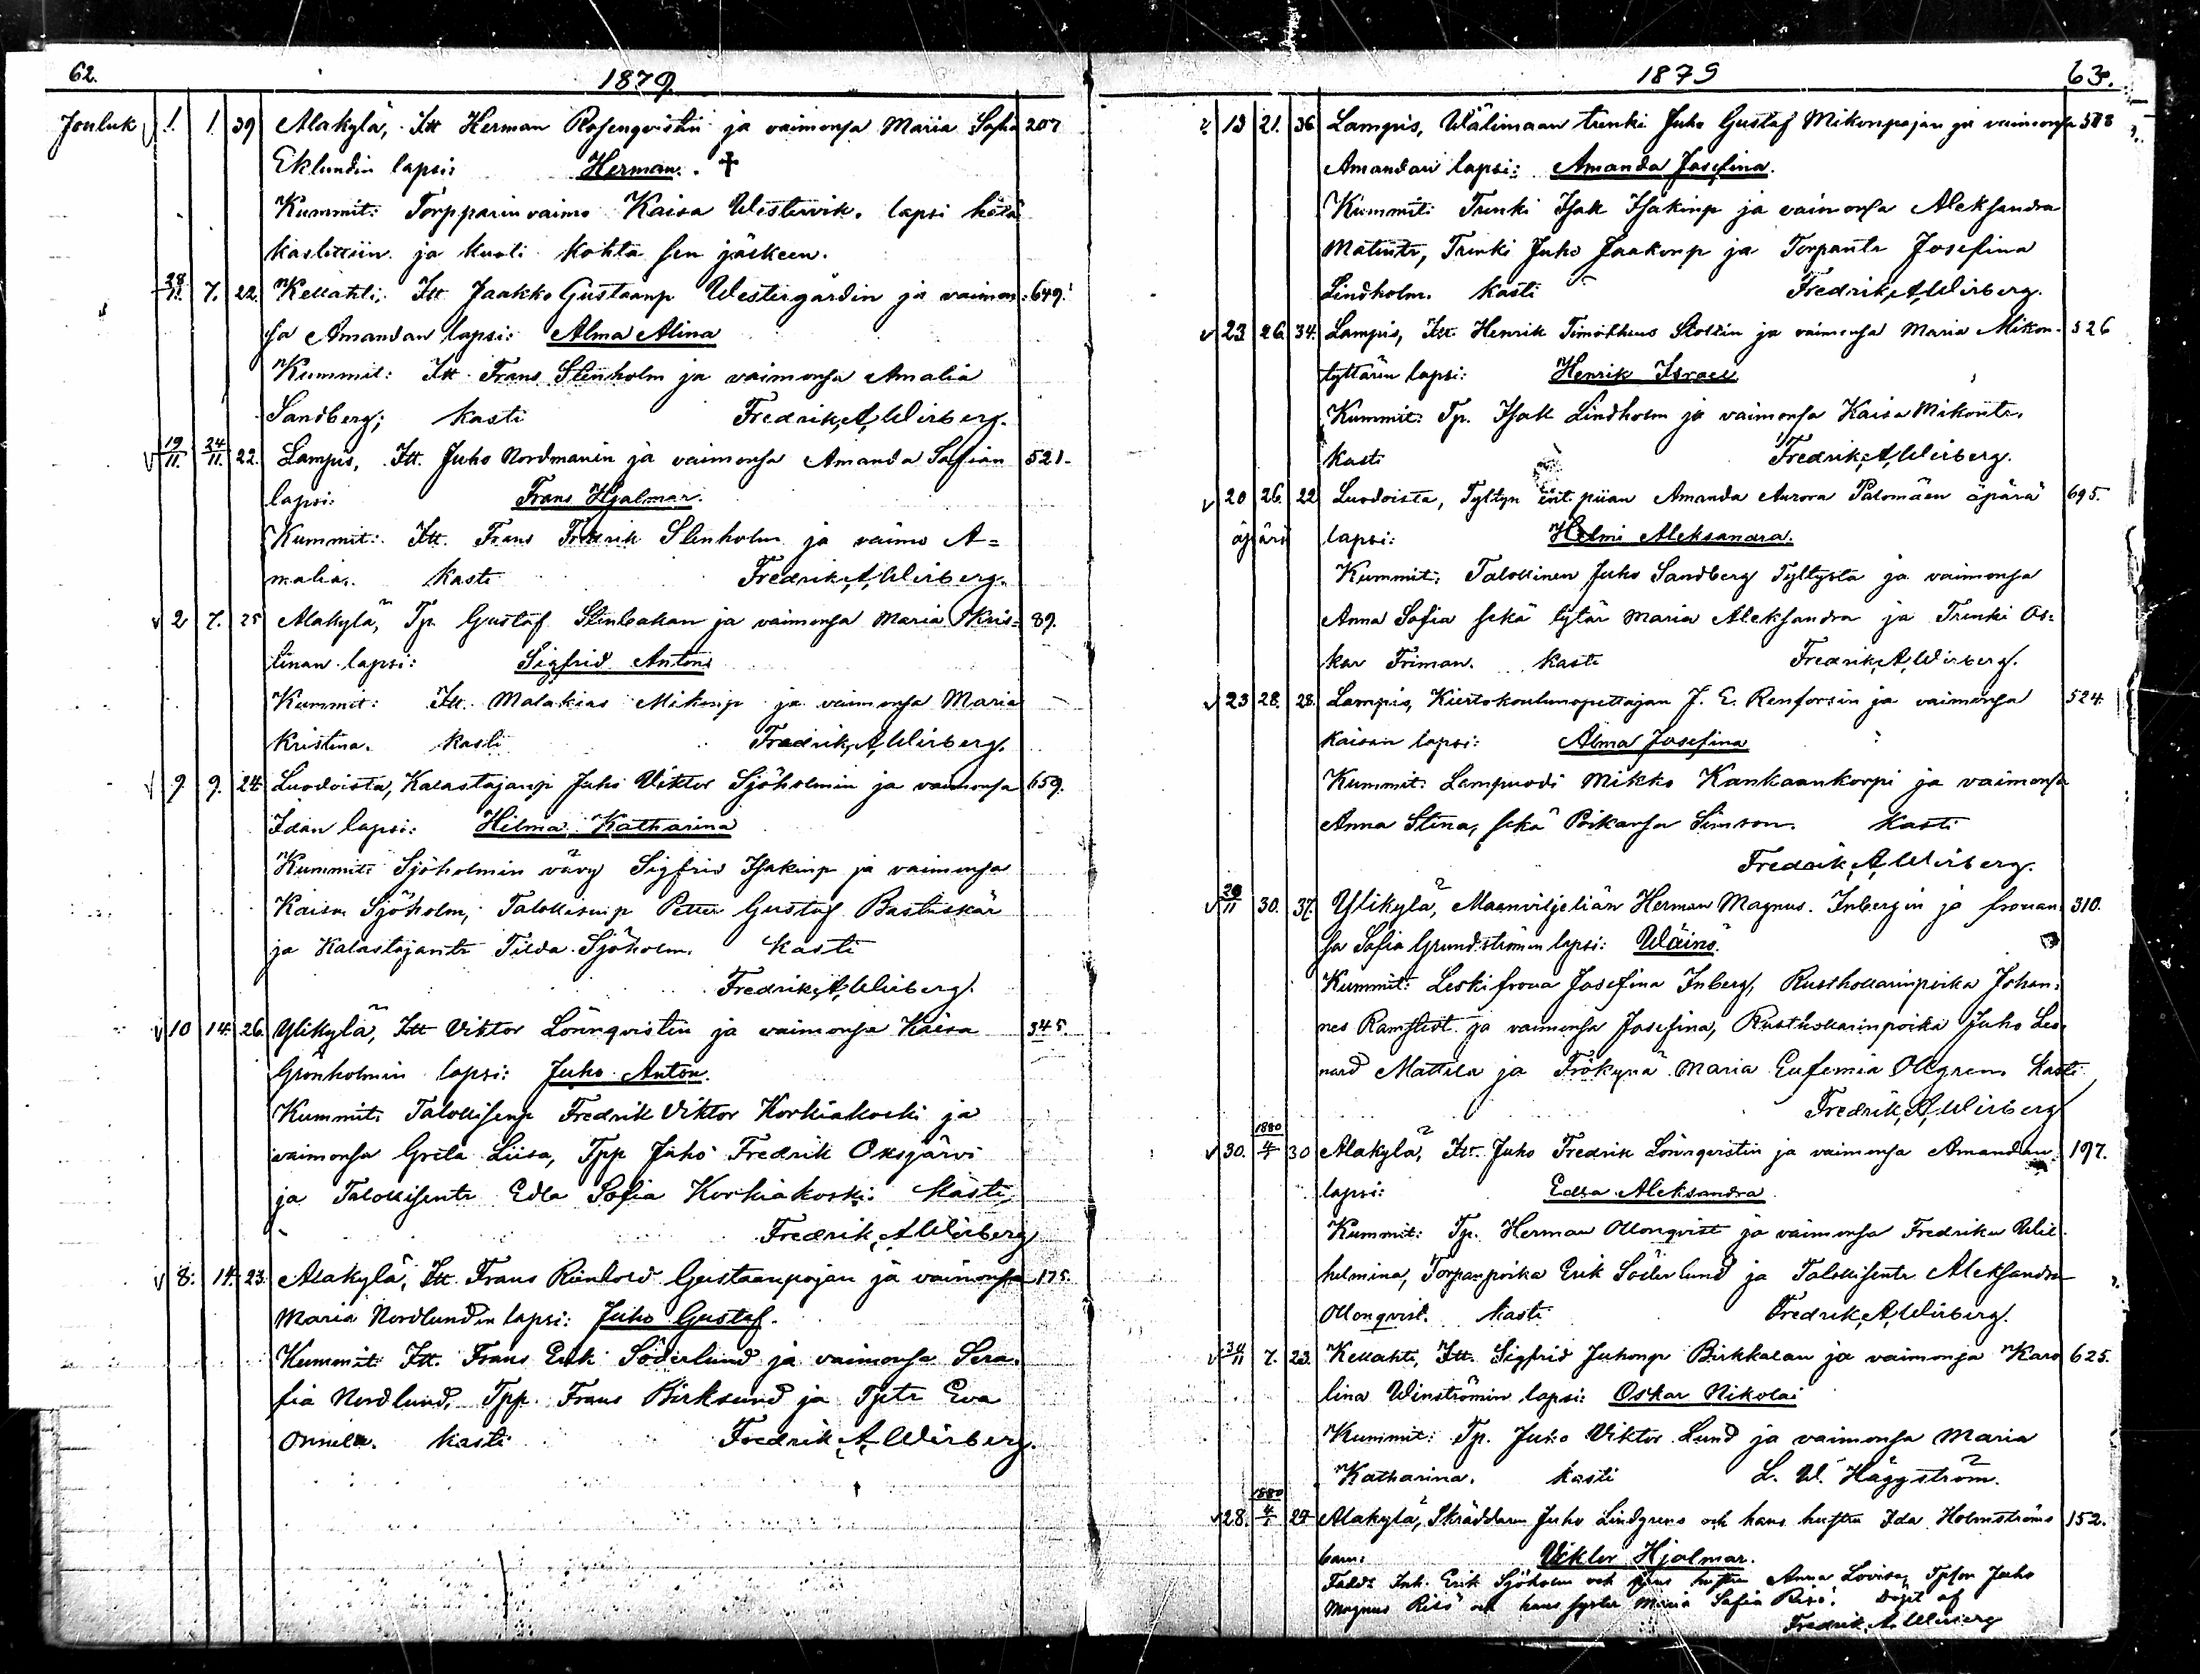 62.
1879
Jouluk 1. 1. 39 Alakylä, Itt Herman Rosenqvistin ja vaimonsa Maria Sofia 207
Eklundin lapsi: Herman. †
Kummit: Torpparin vaimo Kaisa Westervik. lapsi hätä
kastettiin ja kuoli kohta sen jälkeen.
28/11. 7. 22. Kellahti, Itt Jaakko Gustaanp Westergårdin ja vaimon= 649.
sa Amandan lapsi: Alma Alina
Kummit: Itt Frans Stenholm ja vaimonsa Amalia
Sandberg; kasti Fredrik A. Wirberg.
19/11. 24/11. 22. Lampis, Itt. Juho Nordmanin ja vaimonsa Amanda Sofian 521.
lapsi: Frans Hjalmar.
Kummit: Itt. Frans Fredrik Stenholm ja vaimo A=
malia. kasti Fredrik A. Wirberg.
2 7. 25 Alakylä, Tp. Gustaf Stenbakan ja vaimonsa Maria Kris= 89.
tinan lapsi: Sigfrid Anton
Kummit: Itt. Malakias Mikonp ja vaimonsa Maria
Kristina. kasti Fredrik A. Wirberg.
9 9. 24 Luodoista, Kalastajanp Juho Viktor Sjöholmin ja vaimonsa 659.
Idan lapsi: Hilma Katharina
Kummit: Sjöholmin vävy Sigfrid Isakinp ja vaimonsa
Kaisa Sjöholm, Talollisenp Petter Gustaf Bastuskär
ja Kalastajantr Tilda Sjöholm. kasti
Fredrik A. Wirberg.
10 14. 26. Ylikylä, Itt Viktor Lönnqvistin ja vaimonsa Kaisa 345.
Grönholmin lapsi: Juho Anton.
Kummit: Talollisenp Fredrik Viktor Korkiakoski ja
vaimonsa Greta Liisa, Tpp Juho Fredrik Oksjärvi
ja Talollisentr Edla Sofia Korkiakoski. kasti
Fredrik A. Wirberg
8. 14. 23. Alakylä, Itt. Frans Rienhold Gustaanpojan ja vaimonsa 175.
Maria Nordlundin lapsi: Juho Gustaf.
Kummit: Itt. Frans Erik Söderlund ja vaimonsa Sera=
fia Nordlund, Tpp. Frans Birklund ja Tptr Eva
Onnela. kasti Fredrik A. Wirberg.
1879
63.
19 21. 36 Lampis, Wälimaan trenki Juho Gustaf Mikonpojan ja vaimonsa 588
Amandan lapsi: Amanda Josefina.
Kummit: Trenki Isak Isakinp ja vaimonsa Aleksandra
Matintr, Trenki Juho Jaakonp ja Torpantr Josefina
Lindholm. kasti Fredrik A. Wirberg.
23 26. 34. Lampis, Itt. Henrik Timotheus Stollin ja vaimonsa Maria Mikon= 526
tyttärin lapsi: Henrik Israel
Kummit: Tp. Isak Lindholm ja vaimonsa Kaisa Mikontr.
kasti Fredrik A. Wirberg.
20 26. 22 Luodoista, Tyltyn ent. piian Amanda Aurora Palomäen äpärä 695.
äpärä lapsi: Helmi Aleksandra.
Kummit: Talollinen Juho Sandberg Tyltystä ja vaimonsa
Anna Sofia sekä tytär Maria Aleksandra ja Trenki Os=
kar Friman. kasti Fredrik A. Wirberg.
23 28. 28. Lampis, Kiertokoulunopettajan J. E. Renforsin ja vaimonsa 524.
Kaisan lapsi: Alma Josefina
Kummit: Lampuodi Mikko Kankaankorpi ja vaimonsa
Anna Stina, sekä Poikansa Simson. kasti
Fredrik A. Wirberg.
29/11 30. 37. Ylikylä, Maanviljeliän Herman Magnus Inbergin ja frouan= 310.
sa Sofia Grundströmin lapsi: Wäinö.
Kummit: Leskifroua Josefina Inberg, Rusthollarinpoika Johan=
nes Ramstedt ja vaimonsa Josefina, Rusthollarinpoika Juho Leo=
nard Mattila ja Frökynä Maria Eufemia Ollgren. kasti
Fredrik A. Wirberg
30. 1880 4/1 30 Alakylä, Itt. Juho Fredrik Lönnqvistin ja vaimonsa Amandan 197.
lapsi: Edla Aleksandra
Kummit: Tp. Herman Ollonqvist ja vaimonsa Fredrika Wil=
helmina, Torpanpoika Erik Söderlund ja Talollisentr Aleksandra
Ollonqvist. kasti Fredrik A. Wirberg.
30/11 7. 23. Kellahti, Itt. Sigfrid Juhonp Birkkalan ja vaimonsa Karo 625.
lina Winströmin lapsi: Oskar Nikolai
Kummit: Tp. Juho Viktor Lund ja vaimonsa Maria
Katharina. kasti L. W. Häggström.
28. 1880 4/1 27 Alakylä, Skräddaren Juho Lindgrens och hans hustru Ida Holmströms 152.
barn: Viktor Hjalmar.
Fadd: Inh. Erik Sjöholm och hans hustru Anna Lovisa, Tpson Juho
Magnus Risö och hans syster Maria Sofia Risö. Döpt af
Fredrik A. Wirberg